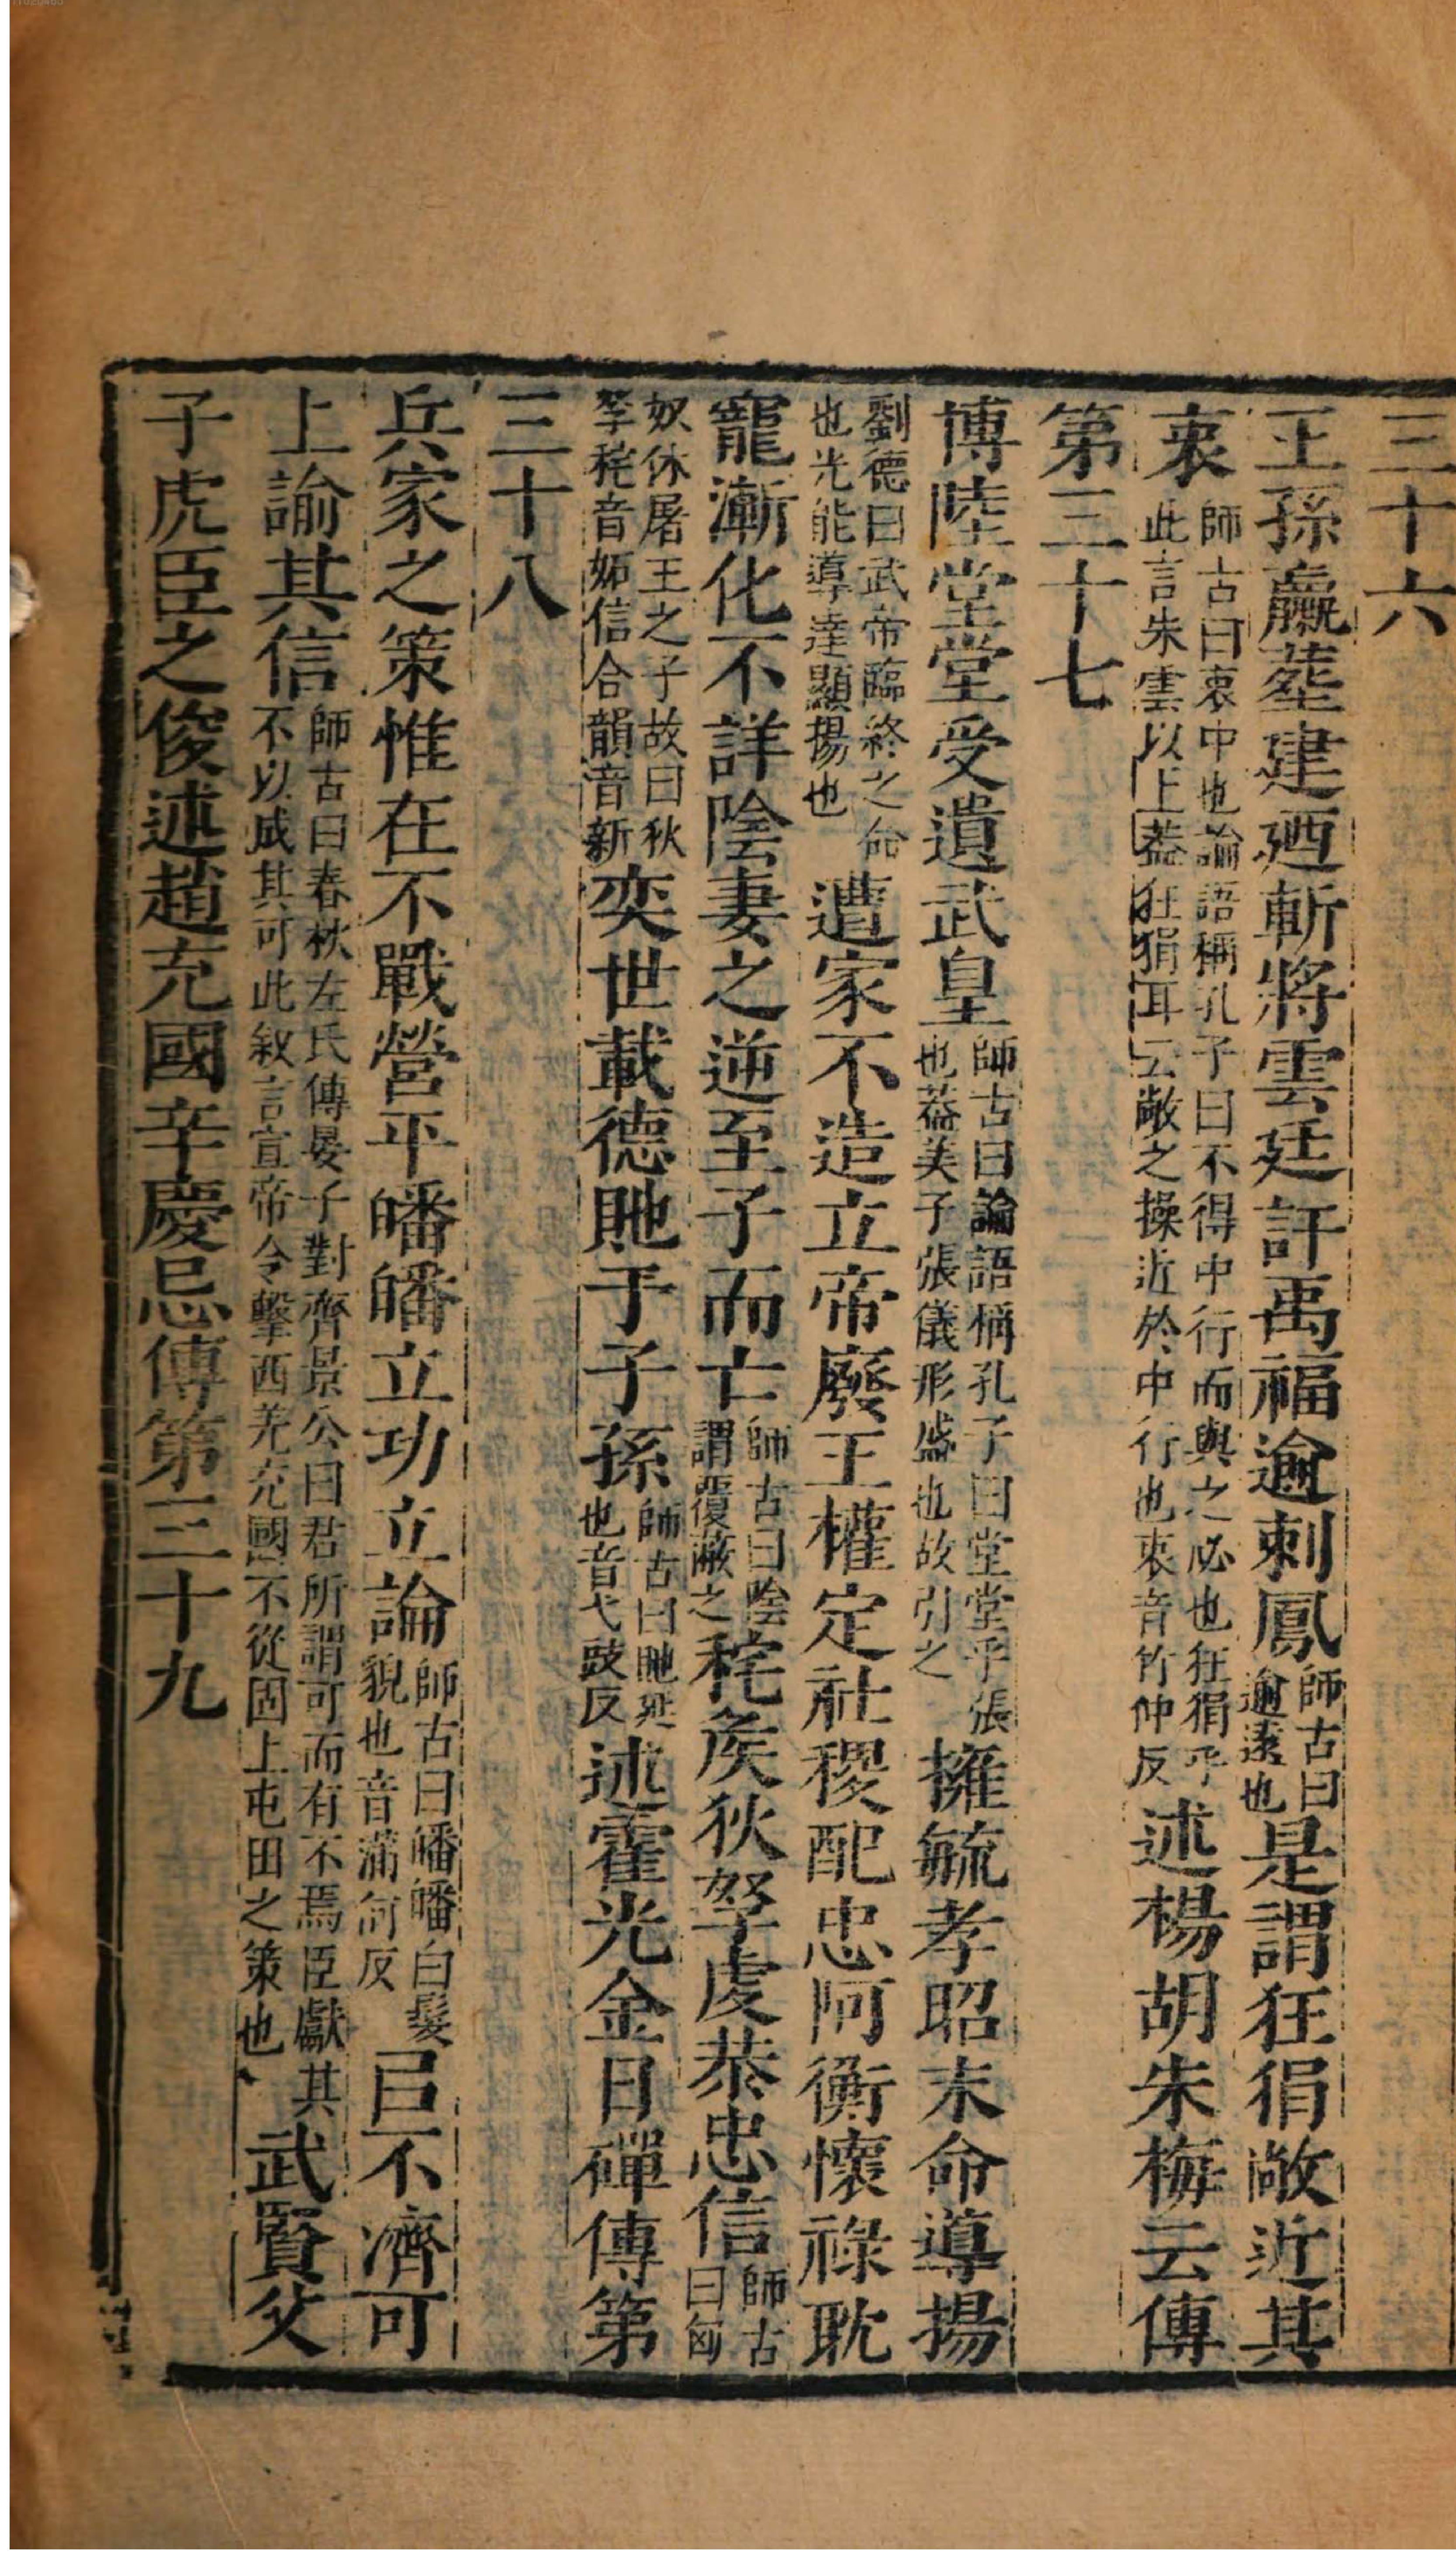 三十六
王孫臝葬建廼斬將雲廷訐禹福逾刺鳳師古曰逾遠也是謂狂狷敞近其
衷師古曰衷中也論語稱孔子曰不得中行而與之必也狂狷乎此言朱雲以上葢狂狷耳云敞之操近於中行也衷音竹仲反述楊胡朱梅云傳
第三十七
博陸堂堂受遺武皇師古曰論語稱孔子曰堂堂乎張也葢美子張儀形盛也故引之擁毓孝昭末命導揚
劉德曰武帝臨終之命也光能導達顯揚也遭家不造立帝廢王權定社稷配忠阿衡懷祿耽
寵漸化不詳陰妻之逆至子而亡師古曰陰謂覆蔽之秺侯狄孥虔恭忠信師古曰匈
奴休屠王之子故曰秋孥秺音妬信合韻音新奕世載德貤于子孫師古曰貤延也音弋豉反述霍光金日磾傳第
三十八
兵家之策惟在不戰營平皤皤立功立論師古曰皤皤白髮貌也音蒲何反㠯不濟可
上諭其信師古曰春秋左氏傳晏子對齊景公曰君所謂可而有不焉臣獻其不以成其可此敘言宣帝令擊西羌充國不從固上屯田之策也武賢父
子虎臣之俊述趙充國辛慶忌傳第三十九